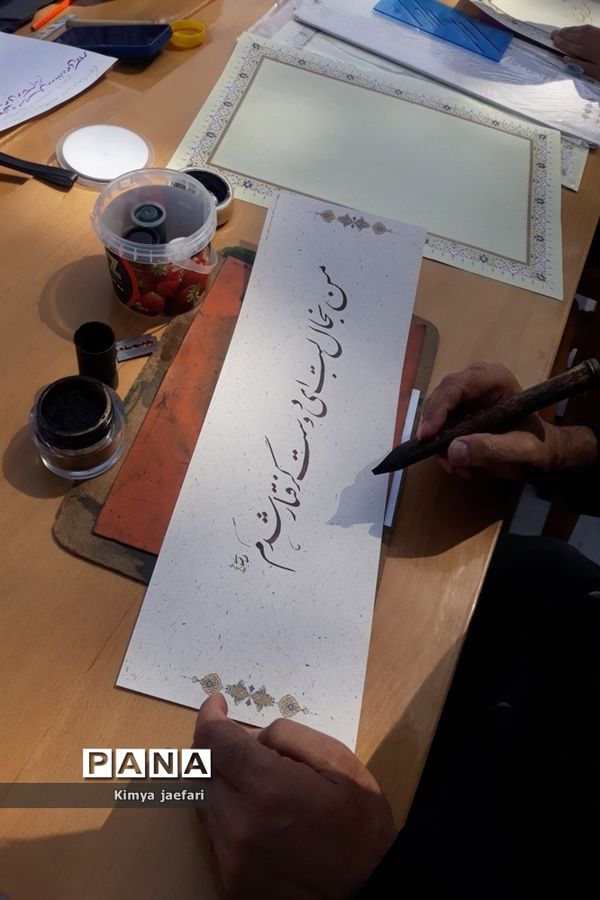 من بخال لبت ای دوست گرفتار شدم
PANA
Kimya jaefari